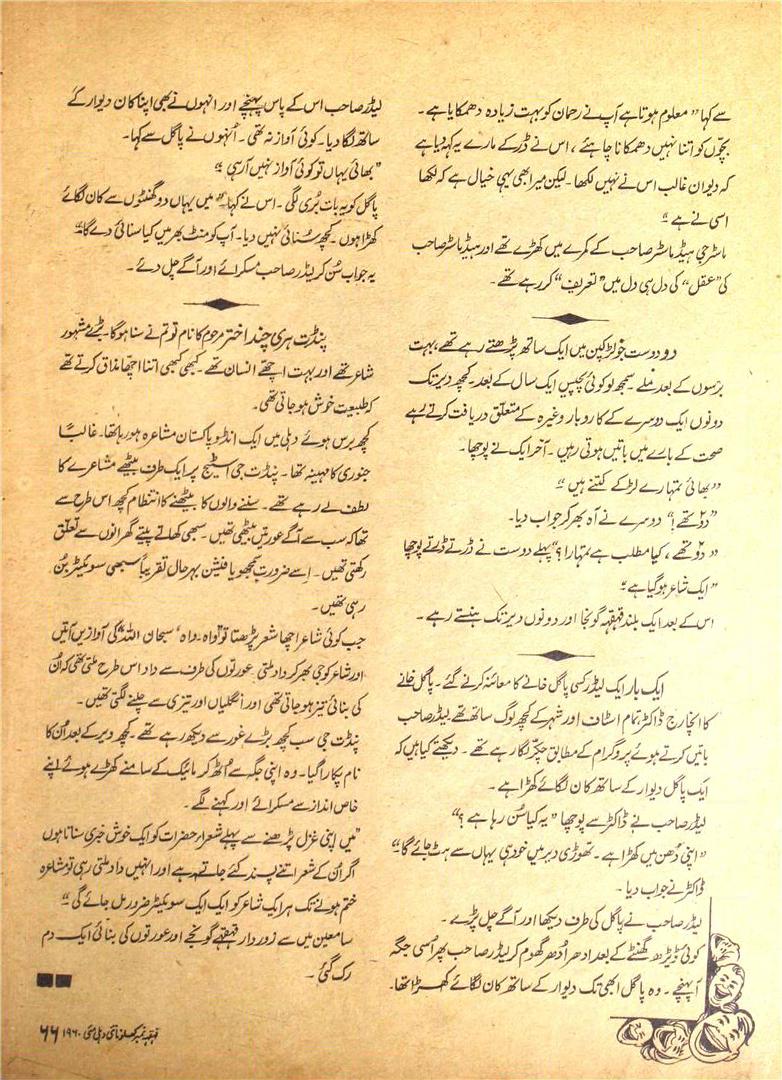 سے کہا ” معلوم ہوتا ہے آپ نے رحمان کو بہت زیادہ دھمکایا ہے۔
بچّوں کو اتنا نہیں دھمکانا چاہئے ، اس نے ڈر کے مارے یہ کہدیا ہے
کہ دیوان غالب اس نے نہیں لکھا۔ لیکن میرا بھی یہی خیال ہے کہ لکھا
اسی نے ہے “
ماسٹر جی ہیڈ ماسٹر صاحب کے کمرے میں کھڑے تھے اور ہیڈ ماسٹر صاحب
کی ”عقل“ کی دل ہی دل میں ”تعریف“ کر رہے تھے۔
دو دوست جو لڑکپن میں ایک ساتھ پڑھتے رہے تھے، بہت
برسوں کے بعد ملے۔ سمجھ لو کوئی پچیس ایک سال کے بعد۔ کچھ دیر تک
دونوں ایک دوسرے کے کاروبار وغیرہ کے متعلق دریافت کرتے رہے
صحت کے بارے میں باتیں ہوتی رہیں۔ آخر ایک نے پوچھا۔
”بھائی تمہارے لڑکے کتنے ہیں “
”دو تھے!“ دوسرے نے آہ بھر کر جواب دیا۔
”دو تھے ، کیا مطلب ہے تمہارا؟“ پہلے دوست نے ڈرتے ڈرتے پوچھا
”ایک شاعر ہو گیا ہے“
اس کے بعد ایک بلند قہقہہ گونجا اور دونوں دیر تک ہنستے رہے۔
ایک بار ایک لیڈر کسی پاگل خانے کا معائنہ کرنے گئے۔ پاگل خانے
کا انچارج ڈاکٹر تمام اسٹاف اور شہر کے کچھ لوگ ساتھ تھے لیڈر صاحب
باتیں کرتے ہوئے پروگرام کے مطابق چکّر لگا رہے تھے۔ دیکھتے کیا ہیں کہ
ایک پاگل دیوار کے ساتھ کان لگائے کھڑا ہے۔
لیڈر صاحب نے ڈاکٹر سے پوچھا ”یہ کیا سُن رہا ہے ؟“
”اپنی دُھن میں کھڑا ہے۔ تھوڑی دیر میں خود ہی یہاں سے ہٹ جائے گا“
ڈاکٹر نے جواب دیا۔
لیڈر صاحب نے پاگل کی طرف دیکھا اور آگے چل پڑے۔
کوئی ڈیڑھ گھنٹے کے بعد ادھر اُدھر گھوم کر لیڈر صاحب پھر اُسی جگہ
آ پہنچے۔ وہ پاگل ابھی تک دیوار کے ساتھ کان لگائے کھڑا تھا۔
لیڈر صاحب اس کے پاس پہنچے اور انہوں نے بھی اپنا کان دیوار کے
ساتھ لگا دیا۔ کوئی آواز نہ تھی۔ اُنہوں نے پاگل سے کہا۔
”بھائی یہاں تو کوئی آواز نہیں آ رہی “
پاگل کو یہ بات بُری لگی۔ اس نے کہا۔ ”میں یہاں دو گھنٹوں سے کان لگائے
کھڑا ہوں۔ کچھ سُنائی نہیں دیا۔ آپ کو منٹ بھر میں کیا سنائی دے گا؟“
یہ جواب سُن کر لیڈر صاحب مُسکرائے اور آگے چل دئے۔
پنڈت ہری چند اختر مرحوم کا نام تو تم نے سنا ہوگا۔ بڑے مشہور
شاعر تھے اور بہت اچھے انسان تھے۔ کبھی کبھی اتنا اچھا مذاق کرتے تھے
کہ طبیعت خوش ہو جاتی تھی۔
کچھ برس ہوئے دہلی میں ایک انڈو پاکستان مشاعرہ ہو رہا تھا۔ غالباً
جنوری کا مہینہ تھا۔ پنڈت جی اسٹیج پر ایک طرف بیٹھے مشاعرے کا
لطف لے رہے تھے۔ سننے والوں کا بیٹھنے کا انتظام کچھ اس طرح سے
تھا کہ سب سے آگے عورتیں بیٹھی تھیں۔ سبھی کھاتے پیتے گھرانوں سے تعلّق
رکھتی تھیں۔ اِسے ضرورت سمجھو یا فیشن بہرحال تقریباً سبھی سوئیٹر بُن
رہی تھیں۔
جب کوئی شاعر اچھا شعر پڑھتا تو ”واہ۔ واہ‘ سبحان اللہ“ کی آوازیں آتیں
اور شاعر کو جی بھر کر داد ملتی۔ عورتوں کی طرف سے داد اس طرح ملتی تھی کہ اُن
کی بنائی تیز ہو جاتی تھی اور انگلیاں اور تیزی سے چلنے لگتی تھیں۔
پنڈت جی سب کچھ بڑے غور سے دیکھ رہے تھے۔ کچھ دیر کے بعد اُن کا
نام پکارا گیا۔ وہ اپنی جگہ سے اُٹھ کر مائیک کے سامنے کھڑے ہوئے اپنے
خاص انداز سے مسکرائے اور کہنے لگے۔
”میں اپنی غزل پڑھنے سے پہلے شعراء حضرات کو ایک خوش خبری سناتا ہوں
اگر اُن کے شعر اتنے پسند کئے جاتے رہے اور انہیں داد ملتی رہی تو مشاعرہ
ختم ہونے تک ہر ایک شاعر کو ایک ایک سوئیٹر ضرور مل جائے گی۔“
سامعین میں سے زور دار قہقہے گونجے اور عورتوں کی بنائی ایک دم
رک گئی۔
قہقہہ نمبر کھلونا نئی دہلی مئی ۱۹۶۰ ۶۶